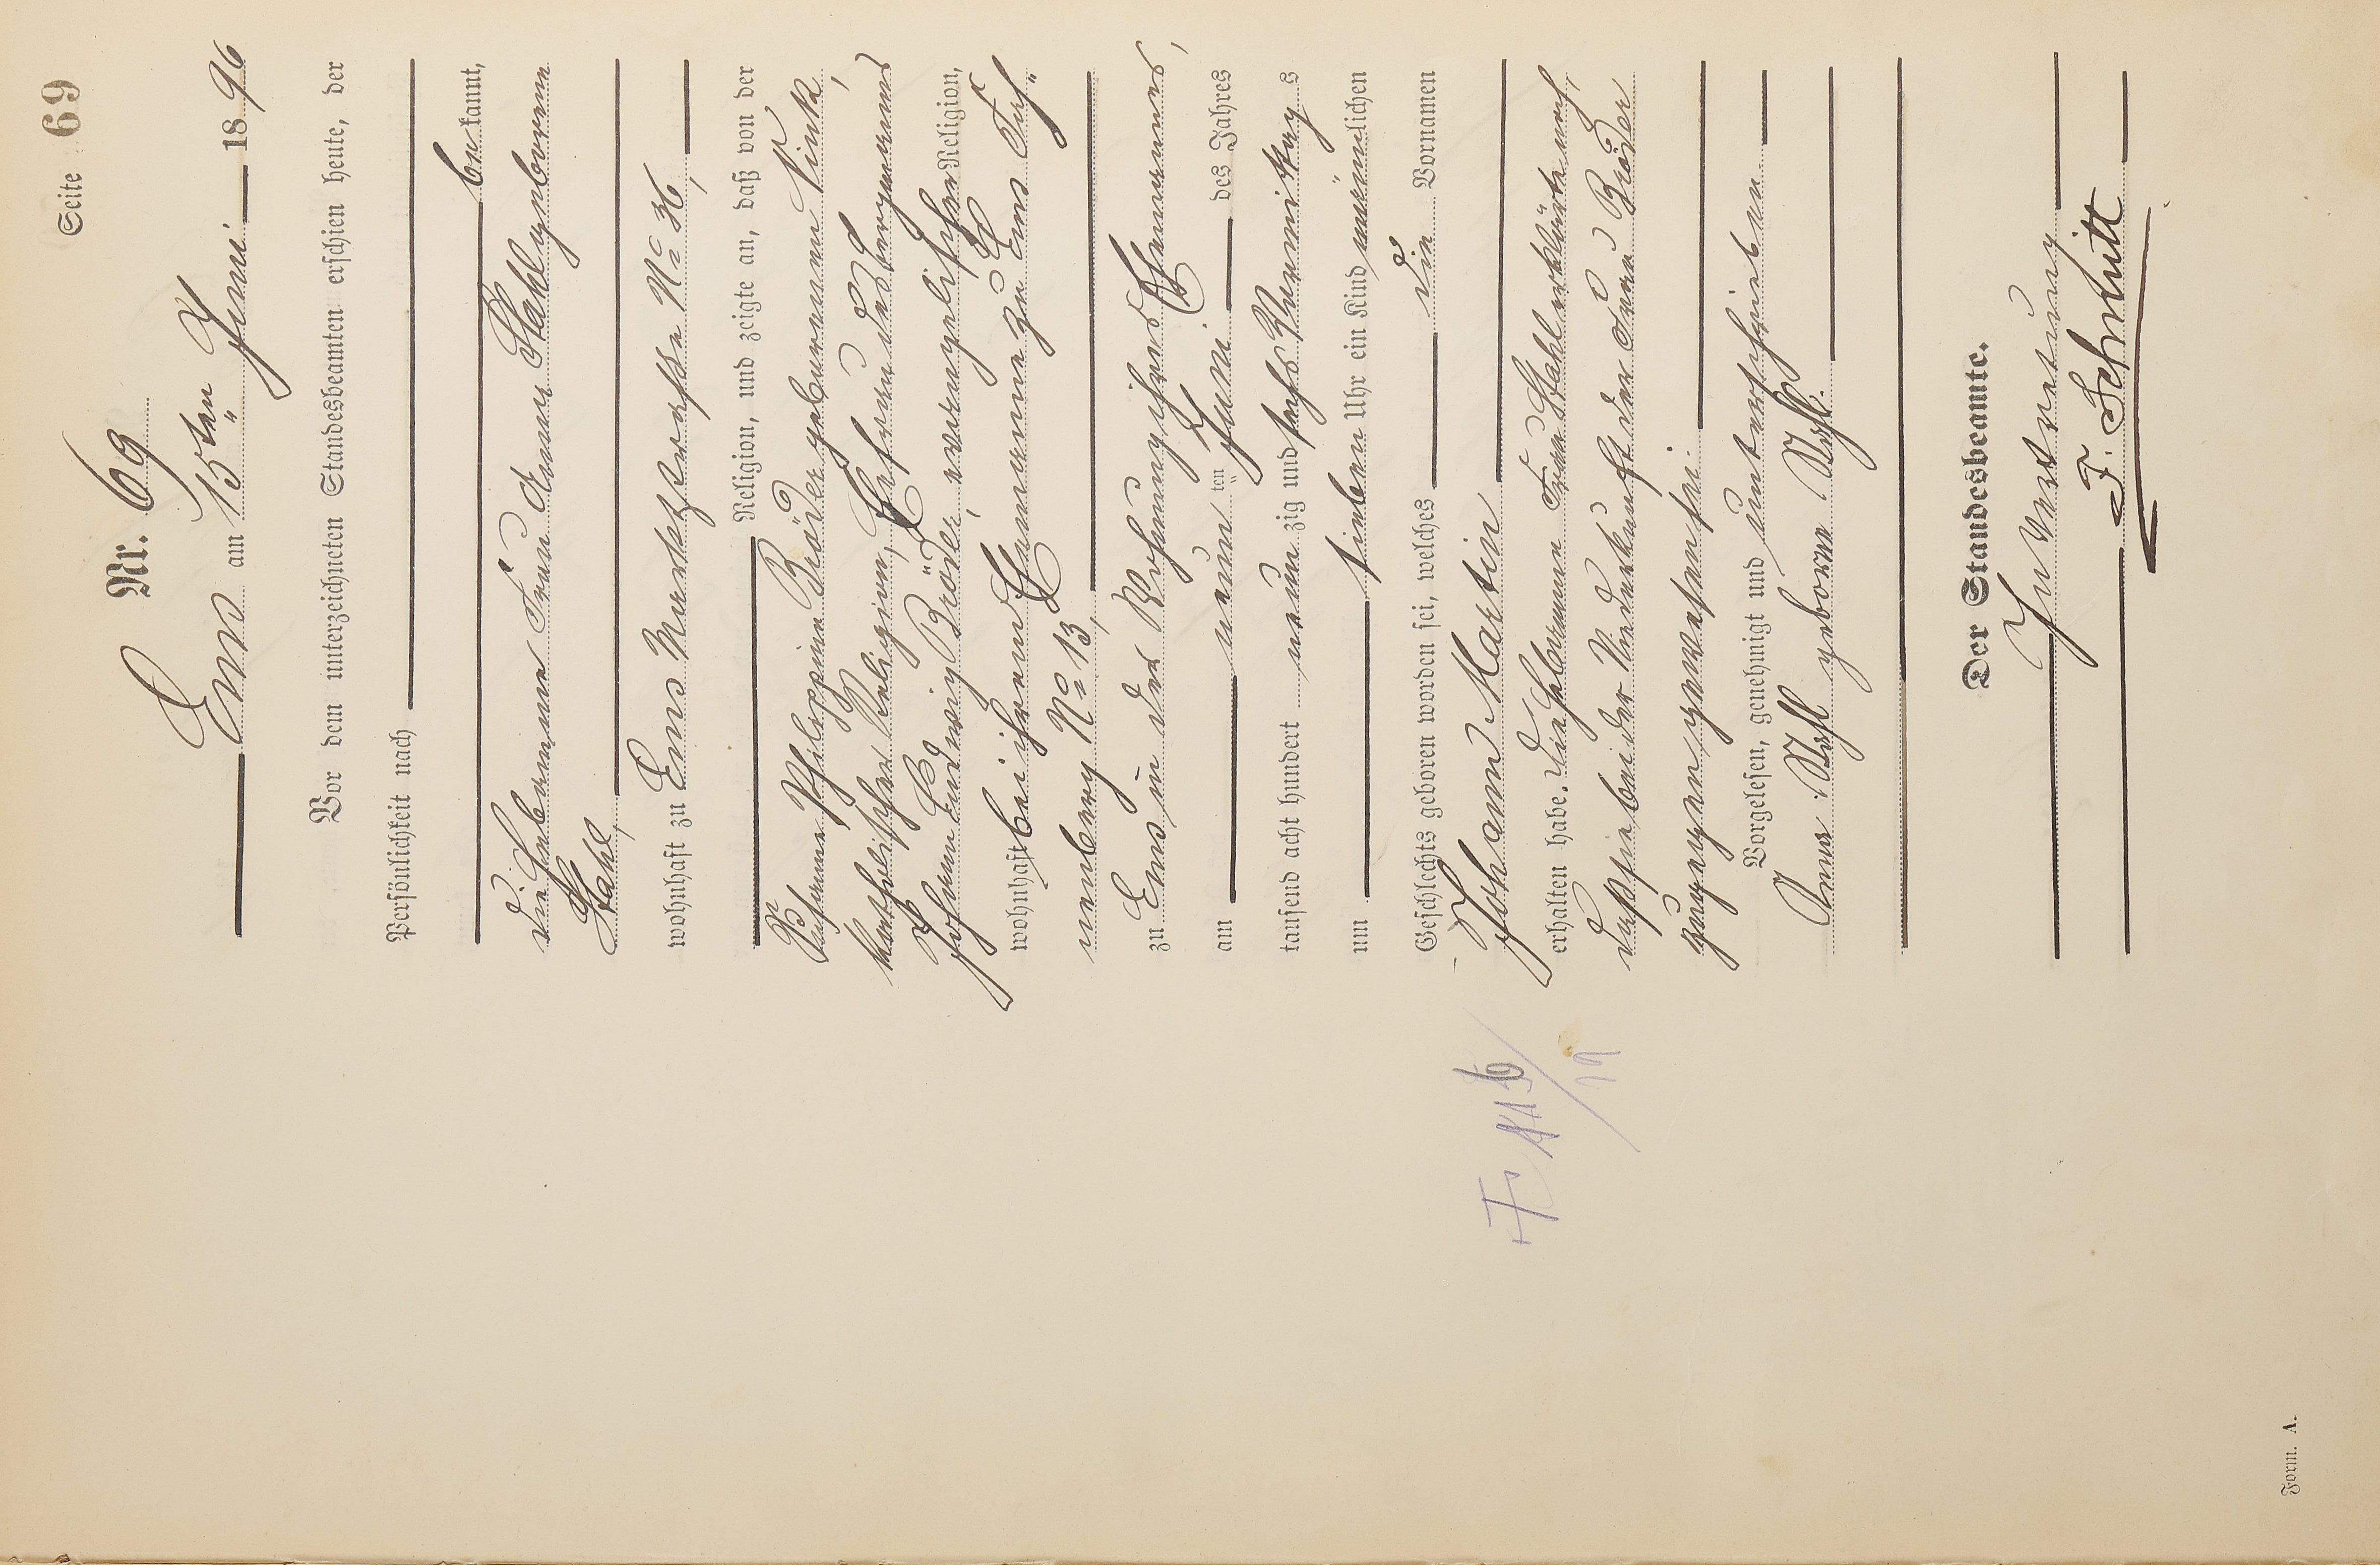 Seite 69
Nr. 69
Ems am 13ten Juni 1896
Vor dem unterzeichneten Standesbeamten erschien heute, der
Persönlichkeit nach
bekannt,
die Hebamme Frau Anna Stahl geborene
Stahl,
wohnhaft zu Ems Marktstraße No 36,
Religion, und zeigte an, daß von der
Philippine Bröder geborenen Fink,
katholischer Religion, Ehefrau des Bergmanns
Johann Ludwig Bröder, evangelischer Religion,
wohnhaft bei ihrem Ehemanne zu Ems
No 13,
zu Ems in der Wohnung ihres Ehemannes,
am neunten Juni des Jahres
tausend acht hundert neunzig und sechs Vormittags
um sieben Uhr ein Kind männlichen
Geschlechts geboren worden sei, welches die Vornamen
Johann Martin
erhalten habe. Die Hebamme Frau Stahl erklärte noch,
daß sie bei der Niederkunft der Frau Bröder
zugegen gewesen sei.
Vorgelesen, genehmigt und unterschrieben
Anna Stahl geborne Stahl.
Der Standesbeamte.
In Vertretung
F. Schmitt
Form. A.